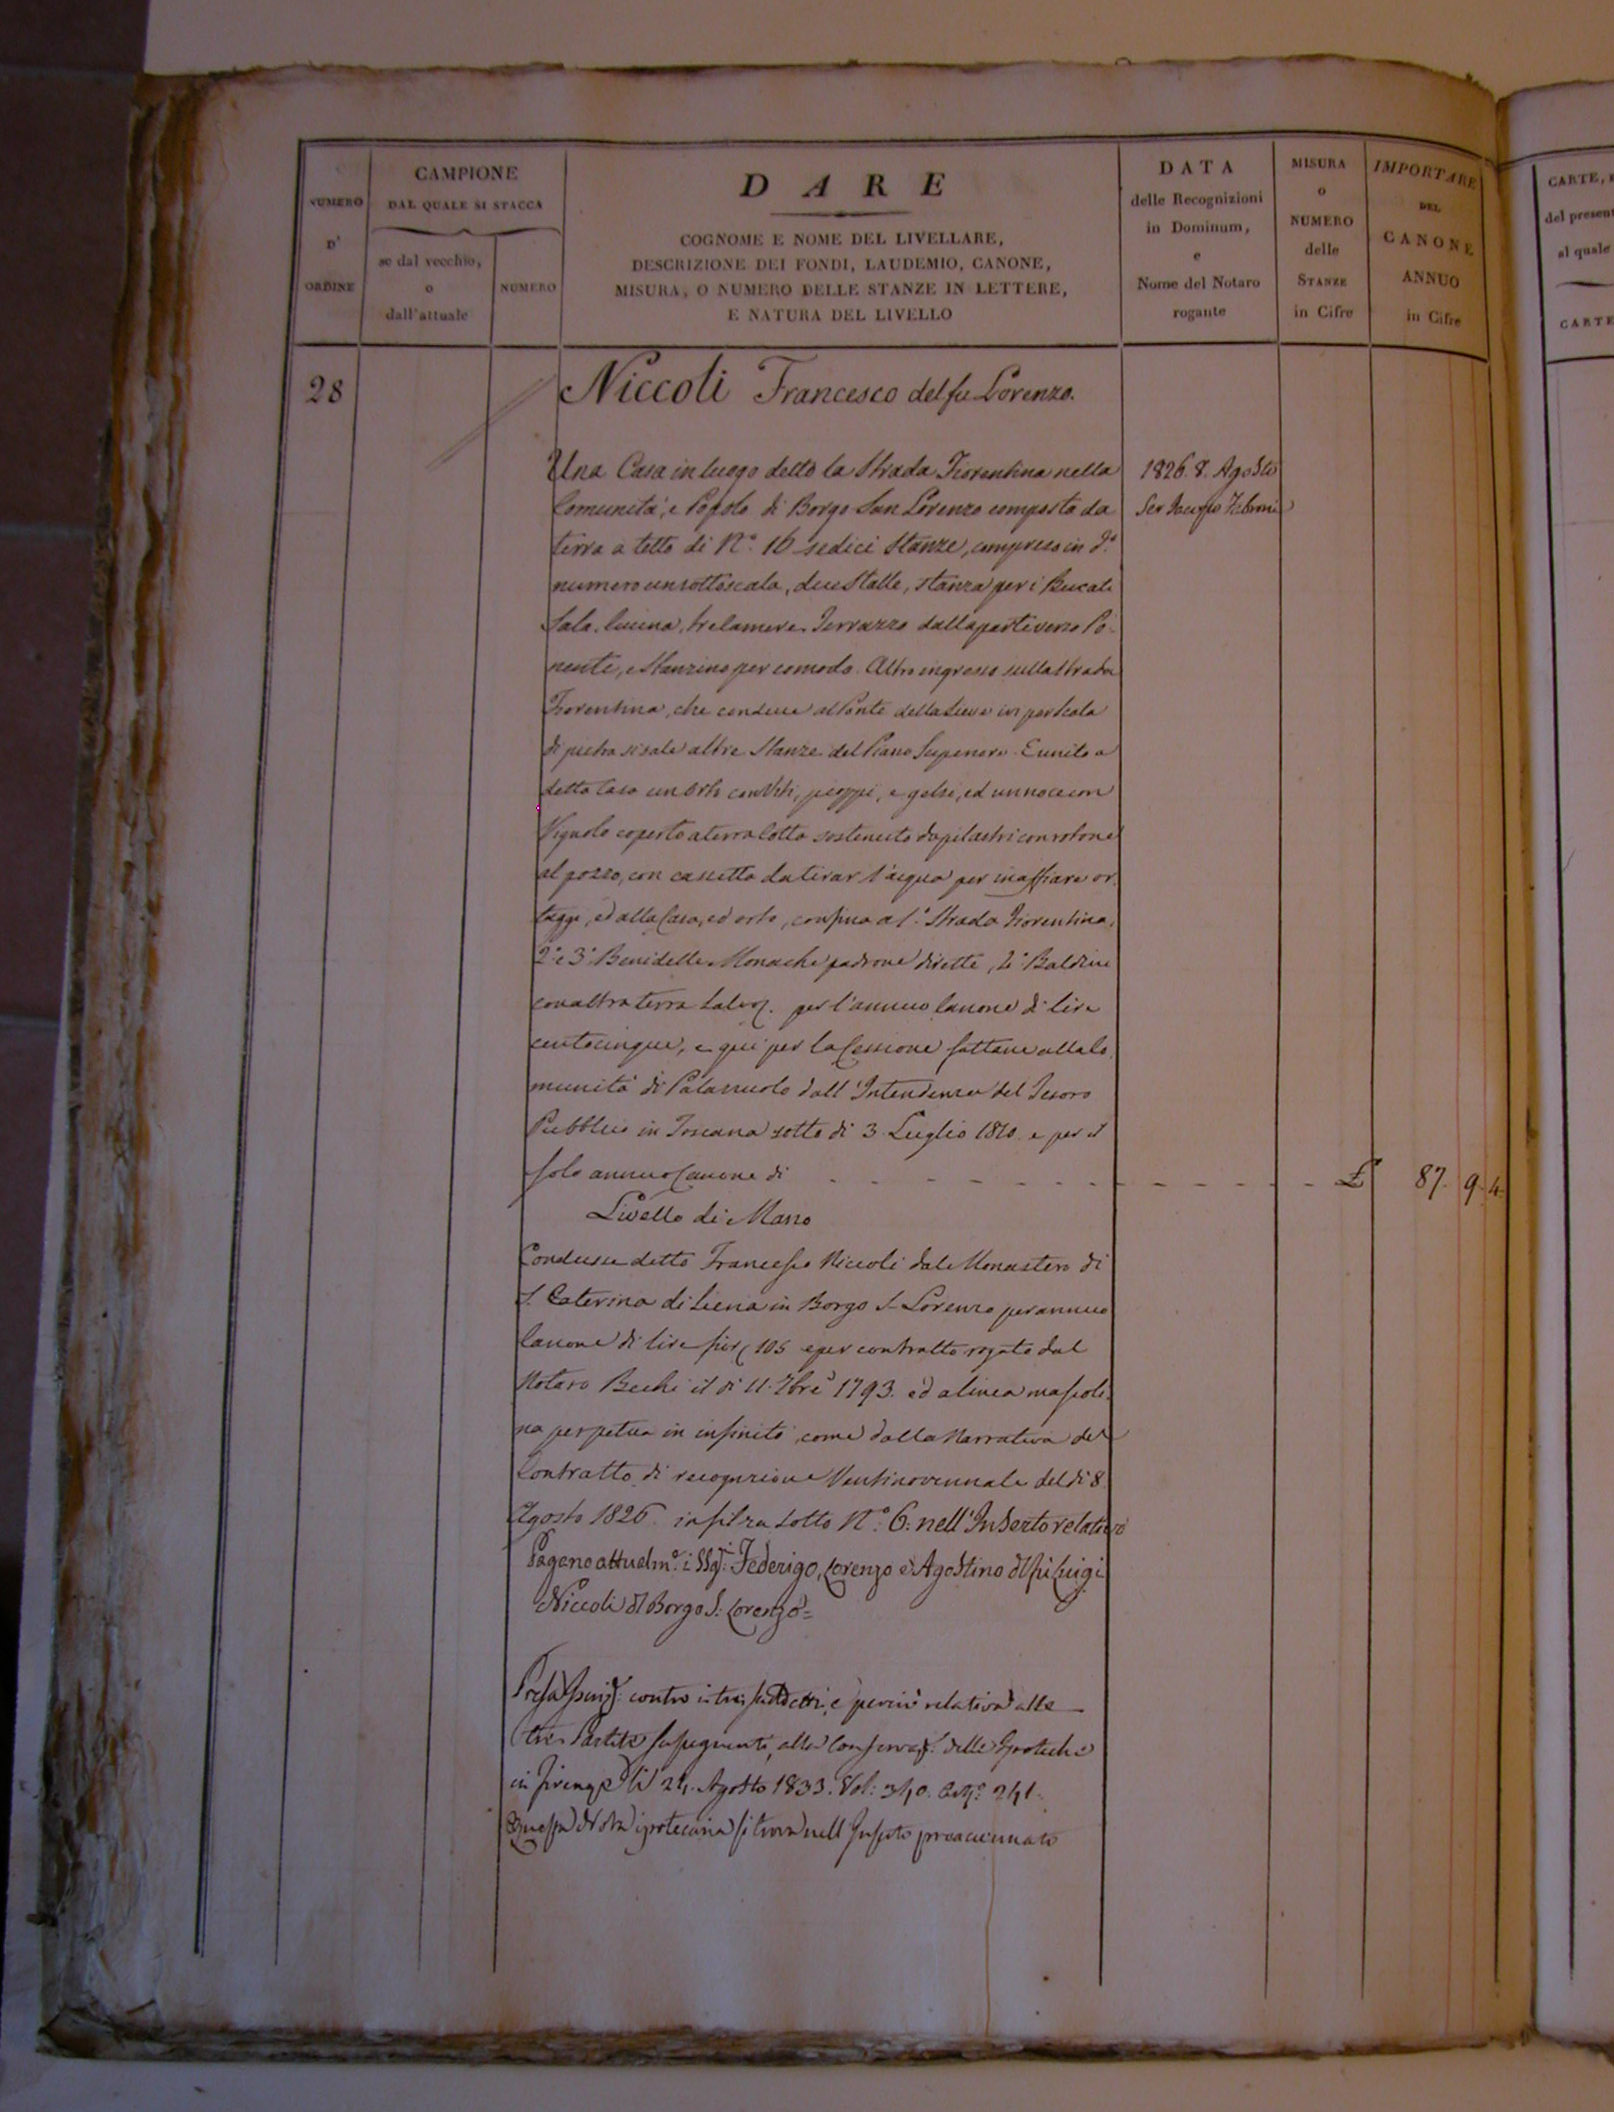 NUMERO
D'
ORDINE
CAMPIONE
DAL QUALE SI STACCA
se dal vecchio,
o
dall'attuale
NUMERO
DARE
COGNOME E NOME DEL LIVELLARE,
DESCRIZIONE DEI FONDI, LAUDEMIO, CANONE,
MISURA, O NUMERO DELLE STANZE IN LETTERE,
E NATURA DEL LIVELLO
DATA
delle Recognizioni
in Dominum,
e
Nome del Notaro
rogante
MISURA
o
NUMERO
delle
STANZE
in Cifre
IMPORTARE
DEL
CANONE
ANNUO
in Cifre
CARTE,
del present
al quale
CARTE
28
Niccoli Francesco del fu Lorenzo.
Una Casa in luogo detto la Strada Fiorentina nella
Comunità, e Popolo di Borgo San Lorenzo composta da
terra a tetto di N.° 16 sedici Stanze, compreso in d.°
numero un sottoscala, due Stalle, stanza per i Bucati
Sala, Cucina, tre Camere, Terrazzo dalla parte verso Po-
nente, e Stanzino per comodo. Altro ingresso sulla strada
Fiorentina, che conduce al Ponte della Sieve ivi per scala
di pietra si sale altre Stanze del Piano Superiore. E unito a
detta Casa un Orto con Viti, pioppi, e gelsi, ed un noce con
coperto a terra Cotta sostenuto da pilastri con
al pozzo, con cassetta da tirar l'acqua per inaffiare or-
taggi, ed alla Casa, ed orto, confina a 1.° Strada Fiorentina,
2.° e 3.° Beni delle Monache padrone dirette, 4.° Baldini
con altra terra Salvo per l'annuo Canone di lire
centocinque, e qui per la Cessione fattane alla Co-
munità di Palazzuolo dall'Intendenza del Tesoro
Pubblico in Toscana sotto dì 3. Luglio 1810. e per il
solo annuo Canone di - - - - - - - £ 87. 9. 4.
Livello di Mano
Condusse detto Francesco Niccoli dal Monastero di
S. Caterina di Siena in Borgo S. Lorenzo per annuo
Canone di lire 105 e per contratto rogato dal
Notaro Bechi il dì 11. 7bre 1793. ed a linea mascoli-
na perpetua in infinito come dalla Narrativa del
Contratto di recognizione Ventinovennale del dì 8.
Agosto 1826. in filza sotto N.° 6: nell'Inserto relativo
Pagano attualm.e i SSg.i Federigo, Lorenzo e Agostino del fu Luigi
Niccoli di Borgo S: Lorenzo =
Presa contro i tre suddetti, e perciò relativa alle
tre Partite susseguenti, alla Conservaz.e delle Ipoteche
in Firenze li 24. Agosto 1833. Vol: 340. 241.
Questa Nota ipotecaria si trova nell'Inserto preaccennato
1826. 8. Agosto
Ser Jacopo